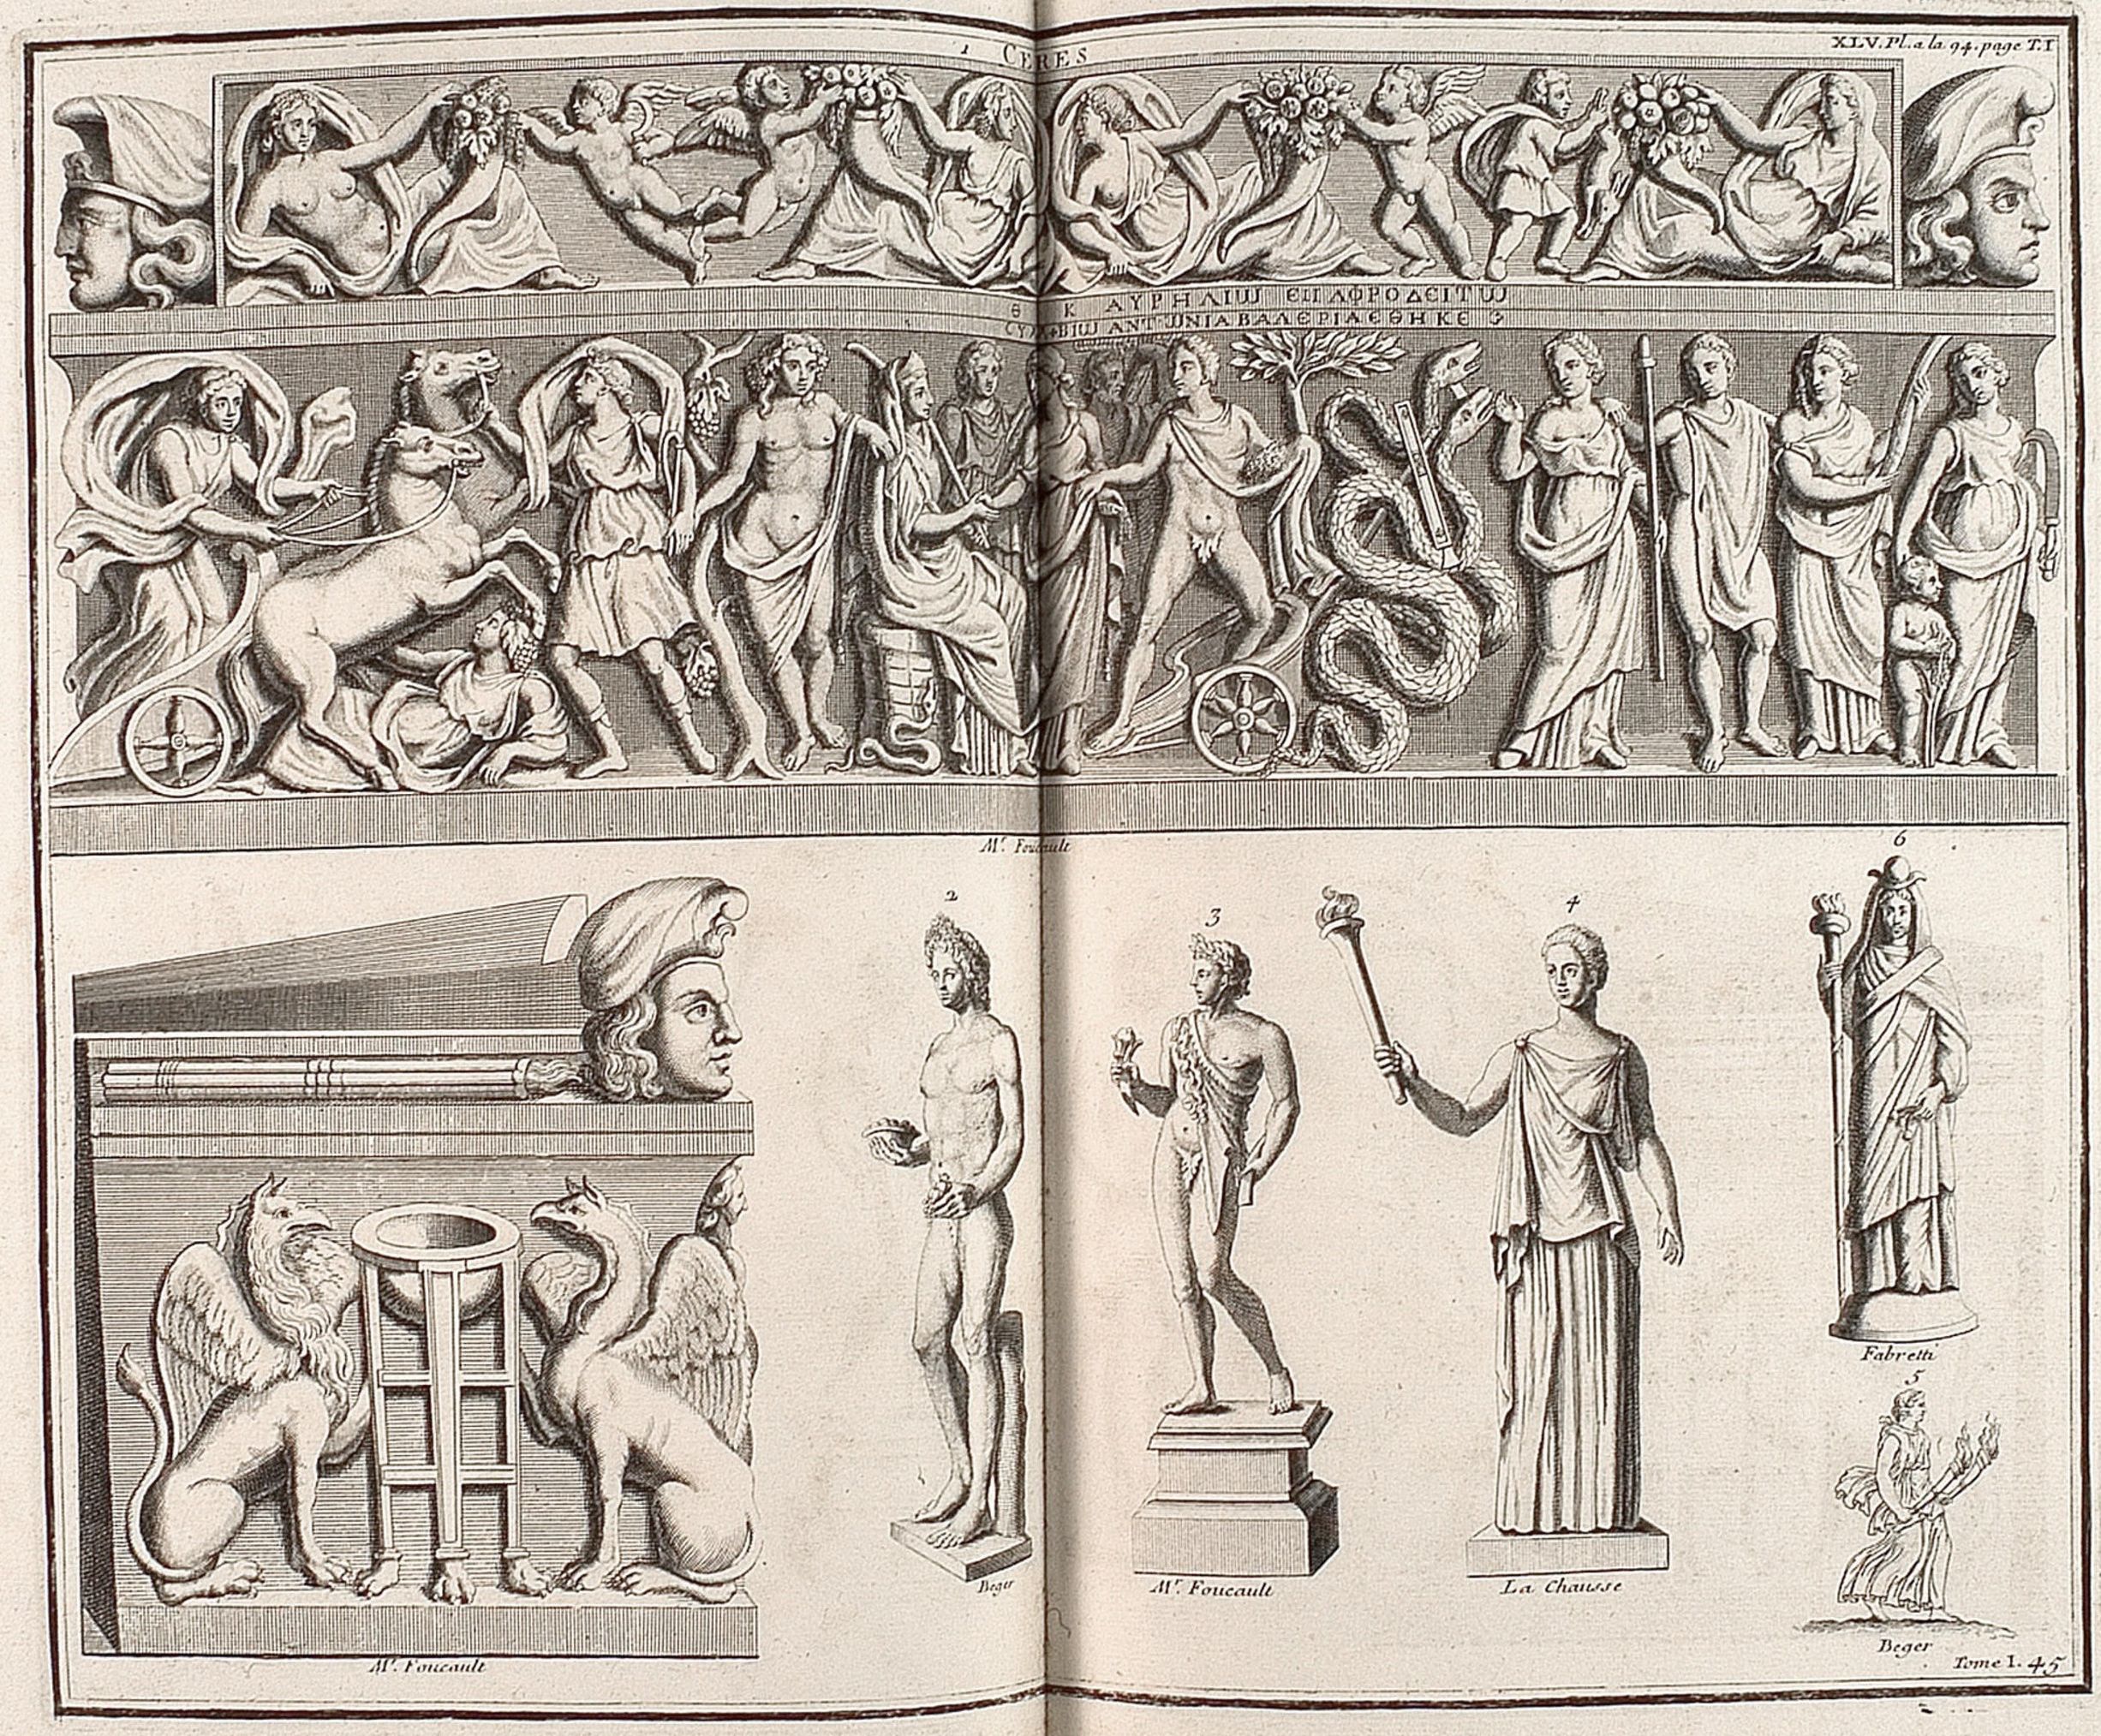 1 CERES
XLV. Pl. a la 94. page T. I
Θ Κ ΑΥΡΗΛΙω ЄΠΑΦΡΟΔЄΙΤω
CΥΜΒΙω ΑΝΤωΝΙΑ ΒΑΛЄΡΙΑ ЄΘΗΚЄ
Mr. Foucault
2
3
4
6
Fabretti
5
Beger
Mr. Foucault
La Chausse
Beger
Mr. Foucault
Tome I. 45